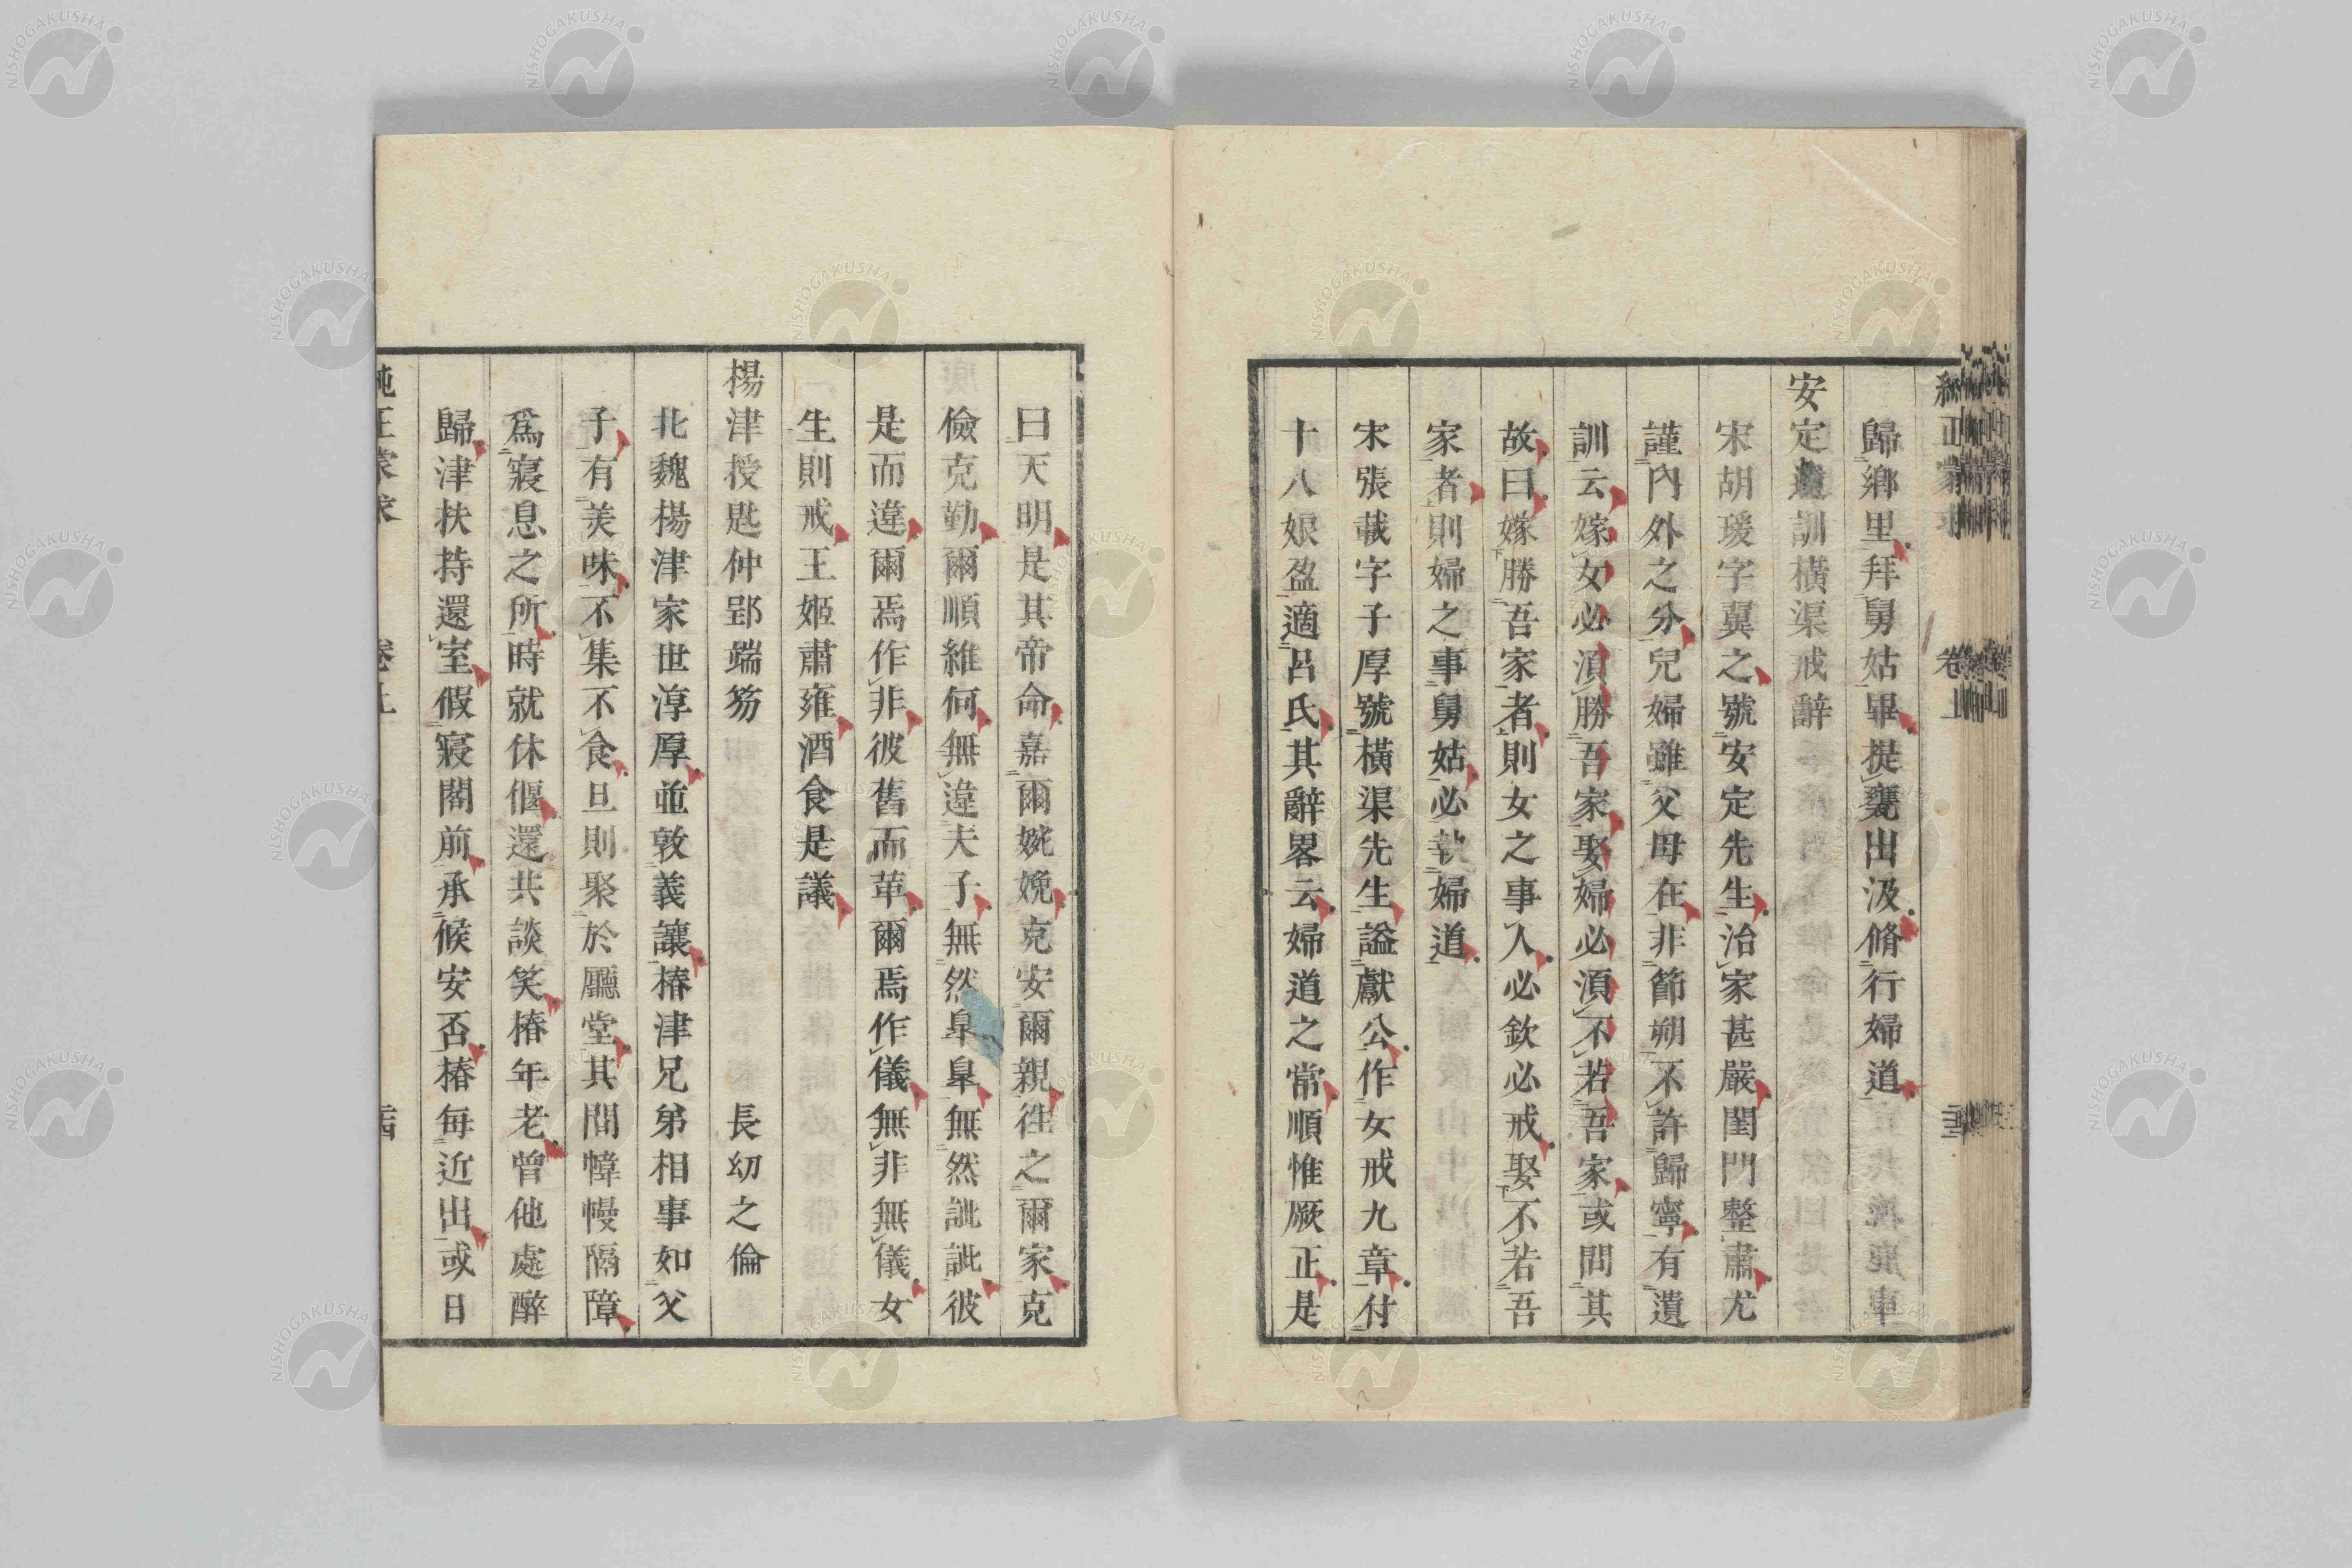 歸鄉里拜舅姑畢提甕出汲脩行婦道
安定遺訓橫渠戒辭
宋胡瑗字翼之號安定先生治家甚嚴閨門整肅尤
謹內外之分兒婦雖父母在非節朔不許歸寧有遺
訓云嫁女必須勝吾家娶婦必須不若吾家或問其
故曰嫁勝吾家者則女之事人必欽必戒娶不若吾
家者則婦之事舅姑必執婦道
宋張載字子厚號橫渠先生謚獻公作女戒九章付
十八娘盈適呂氏其辭畧云婦道之常順惟厥正是
曰天明是其帝命嘉爾婉娩克安爾親往之爾家克
儉克勤爾順維何無違夫子無然臯臯無然訿訿彼
是而違爾焉作非彼舊而革爾焉作儀無非無儀女
生則戒王姬肅雍酒食是議
楊津授匙仲郢端笏 長幼之倫
北魏楊津家世淳厚並敦義讓椿津兄弟相事如父
子有美味不集不食旦則聚於廳堂其間幃幔隔障
爲寢息之所時就休偃還共談笑椿年老曾他處醉
歸津扶持還室假寢閤前承候安否椿每近出或日
卷上
NISHOGAKUSHA